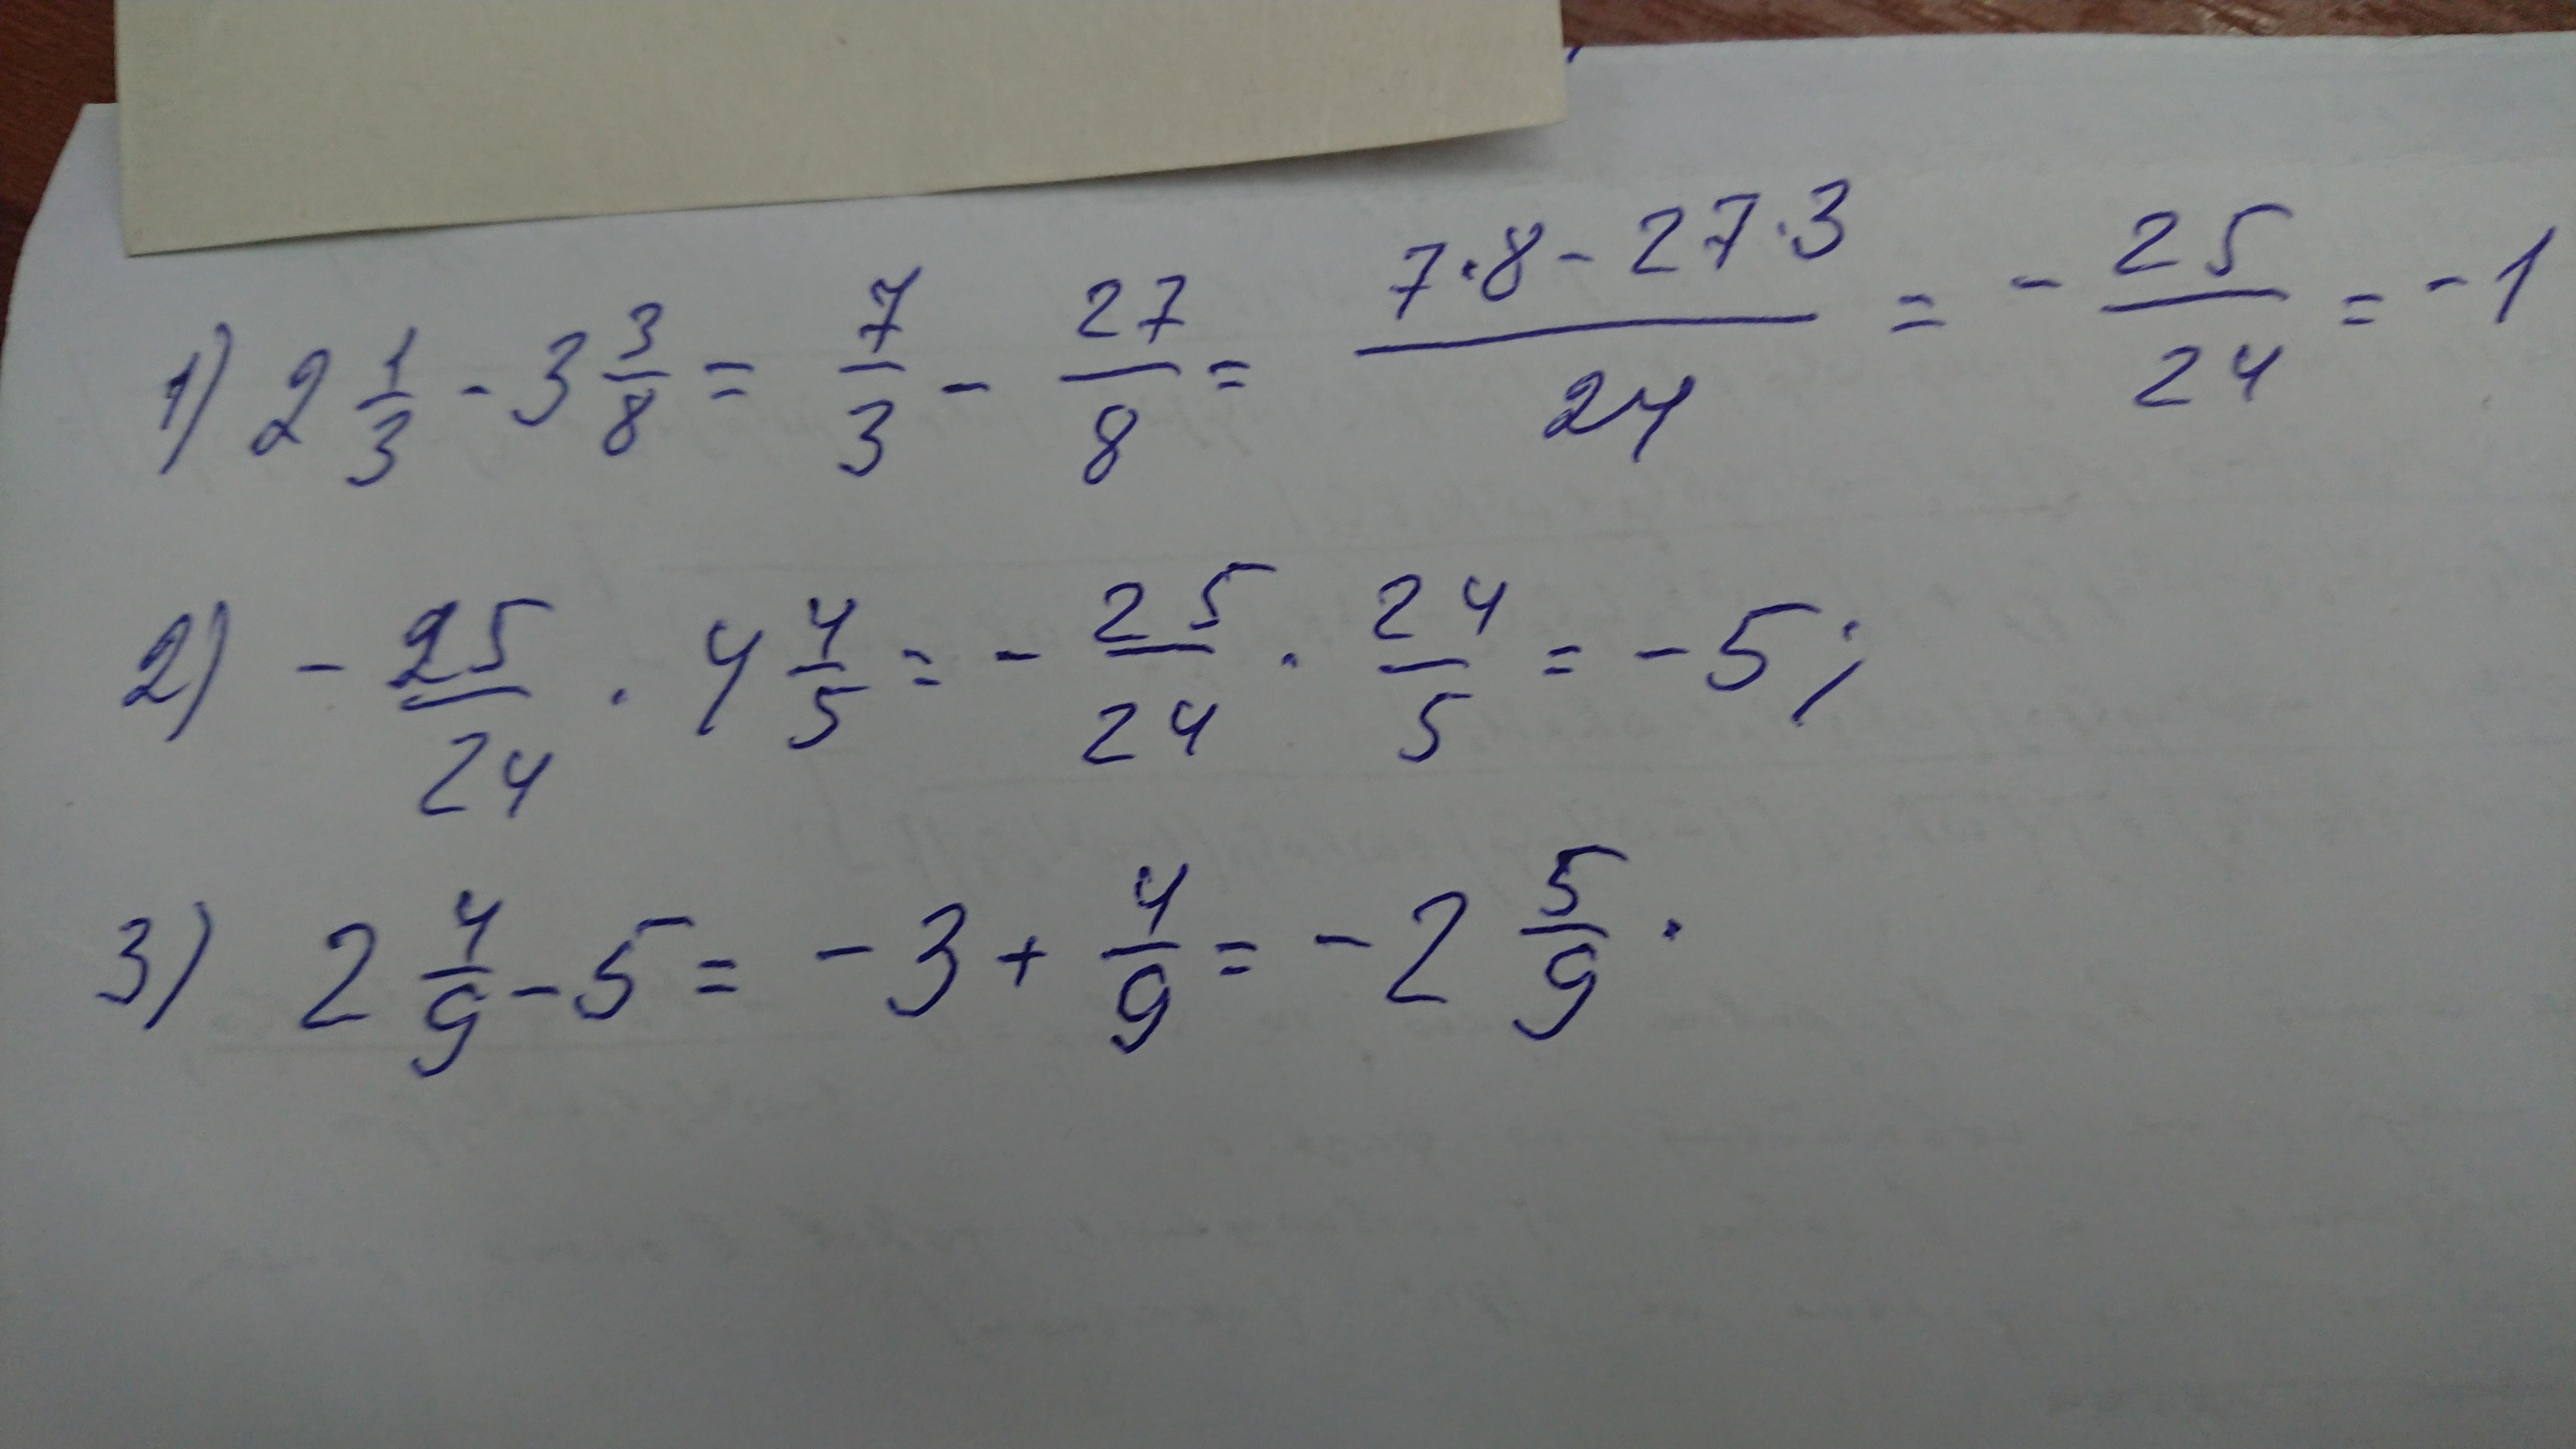 1) 2 1/3 - 3 3/8 = 7/3 - 27/8 = (7·8 - 27·3)/24 = - 25/24 = - 1
2) - 25/24 · 4 4/5 = - 25/24 · 24/5 = - 5;
3) 2 4/9 - 5 = - 3 + 4/9 = - 2 5/9.